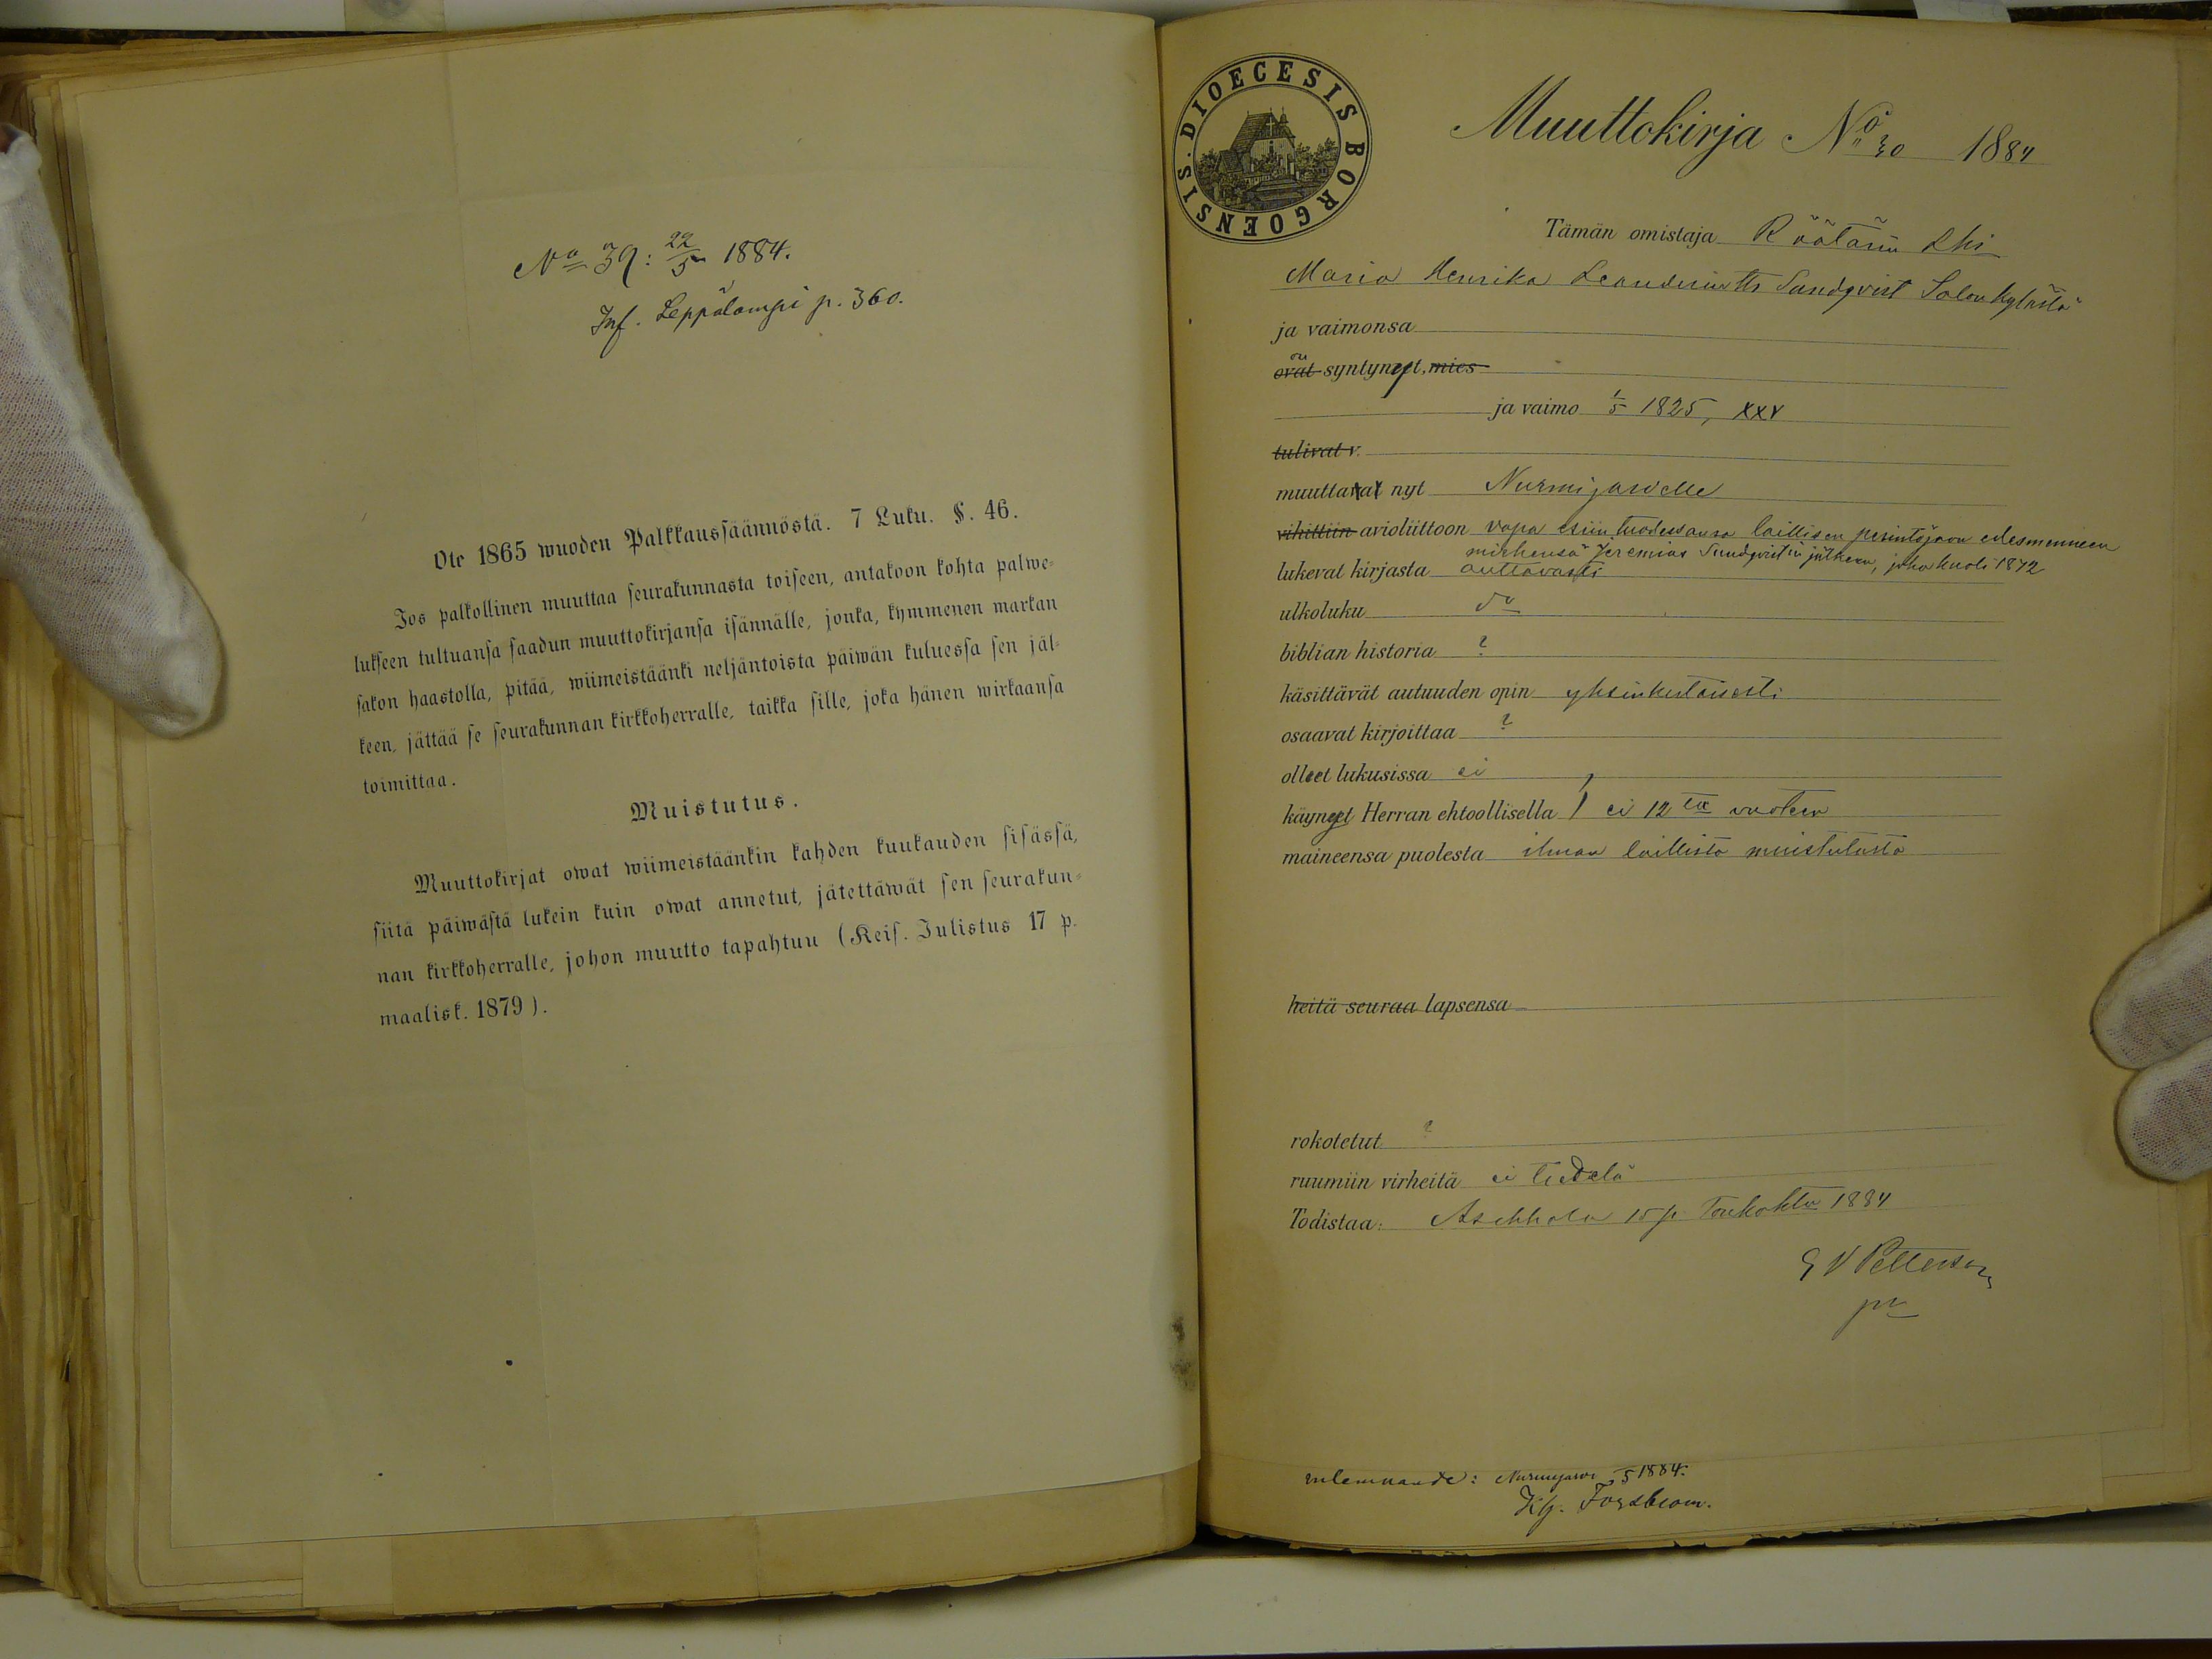 No 39: 22/5 1884.
Inf. Leppälampi p. 360.
Ote 1865 wuoden Palkkaussäännöstä. 7 Luku. §. 46.
Jos palkollinen muuttaa seurakunnasta toiseen, antakoon kohta palwe-
lukseen tultuansa saadun muuttokirjansa isännälle, jonka, kymmenen markan
sakon haastolla, pitää, wiimeistäänki neljäntoista päiwän kuluessa sen jäl-
keen, jättää se seurakunnan kirkkoherralle, taikka sille, joka hänen wirkaansa
toimittaa.
Muistutus.
Muuttokirjat owat wiimeistäänkin kahden kuukauden sisässä,
siitä päiwästä lukein kuin owat annetut, jätettäwät sen seurakun-
nan kirkkoherralle, johon muutto tapahtuu (Keis. Julistus 17 p.
maalisk. 1879).
DIOECESIS BORGOENSIS.
Muuttokirja No 30 1884
Tämän omistaja Räätärin Lhi
Maria Henrika Leanderintr Sundqvist Salon kylästä
ja vaimonsa
on
ovat syntynyt, mies
ja vaimo 1/5 1825, XXV
tulivat v.
muuttavat nyt Nurmijärvelle
vihittiin avioliittoon vapa esiin tuodessansa laillisen perintöjaon edesmenneen
miehensä Jeremias Sundqvistin jälkeen, joka kuoli 1872
lukevat kirjasta auttavasti
ulkoluku do
biblian historia ?
käsittävät autuuden opin yksinkertaisesti
osaavat kirjoittaa ?
olleet lukusissa ei
käynyt Herran ehtoollisella ei 12 ta vuoteen
maineensa puolesta ilman laillista muistutusta
heitä seuraa lapsensa
rokotetut ?
ruumiin virheitä ei tiedetä
Todistaa: Askkola 15 p. Toukokta 1884
G V Petterson
inlemnande: Nurmijärvi 5 1884.
Kp. Forsblom.